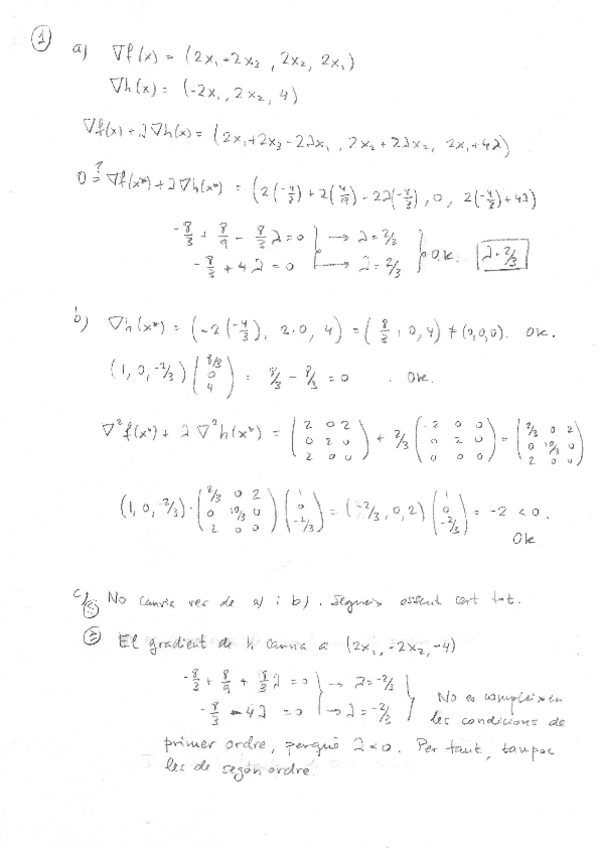 ①
a) ∇f(x) = (2x₁+2x₃, 2x₂, 2x₁)
∇h(x) = (-2x₁, 2x₂, 4)
∇f(x)+λ∇h(x) = (2x₁+2x₃-2λx₁, 2x₂+2λx₂, 2x₁+4λ)
0 ≟ ∇f(x*)+λ∇h(x*) = (2(-4/3)+2(4/9)-2λ(-4/3), 0, 2(-4/3)+4λ)
-8/3 + 8/9 - 8/3 λ = 0 → λ=2/3
-8/3 + 4λ = 0 → λ=2/3 } O.K. λ=2/3
b) ∇h(x*) = (-2(-4/3), 2·0, 4) = (8/3, 0, 4) ≠ (0,0,0). OK.
(1, 0, -2/3) (8/3 0 4) = 8/3 - 8/3 = 0. OK.
∇²f(x*) + λ∇²h(x*) = (2 0 2 / 0 2 0 / 2 0 0) + 2/3 (-2 0 0 / 0 2 0 / 0 0 0) = (2/3 0 2 / 0 10/3 0 / 2 0 0)
(1, 0, -2/3) · (2/3 0 2 / 0 10/3 0 / 2 0 0) (1 0 -2/3) = (-2/3, 0, 2) (1 0 -2/3) = -2 < 0.
OK
c) No canvia res de a) i b). Segueix essent cert tot.
El gradient de h canvia a (2x₁, -2x₂, -4)
-8/3 + 8/9 + 8/3 λ = 0 → λ=-2/3
-8/3 - 4λ = 0 → λ=-2/3
No es compleixen
les condicions de
primer ordre, perquè λ<0. Per tant, tampoc
les de segon ordre.